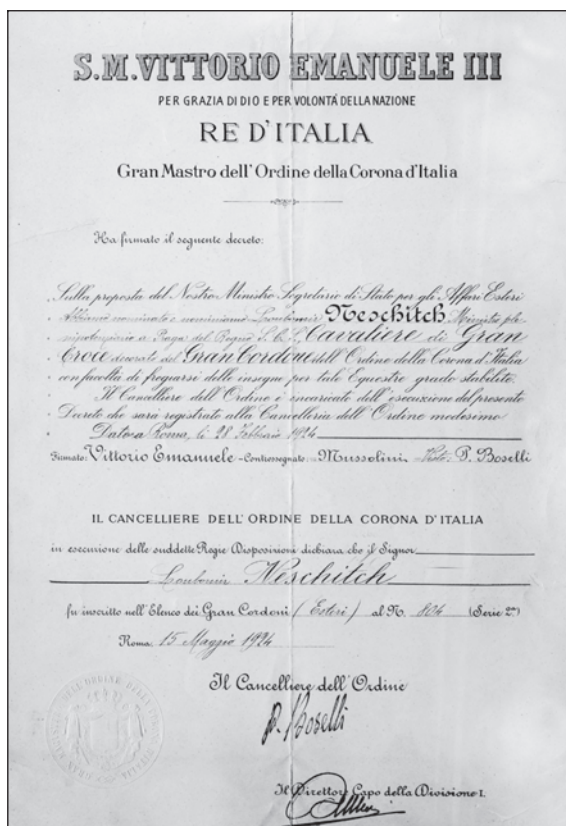 S.M. VITTORIO EMANUELE III
PER GRAZIA DI DIO E PER VOLONTÁ DELLA NAZIONE
RE D'ITALIA
Gran Mastro dell'Ordine della Corona d'Italia
Ha firmato il seguente decreto:
Sulla proposta del Nostro Ministro Segretario di Stato per gli Affari Esteri
Abbiamo nominato e nominiamo Loubomir Neschitch, Ministro ple
nipotenziario a Praga del Regno S.C.S., Cavaliere di Gran
Croce decorato del Gran Cordone dell'Ordine della Corona d'Italia
con facoltà di fregiarsi delle insegne per tale Equestre grado stabilite.
Il Cancelliere dell'Ordine è incaricato dell'esecuzione del presente
Decreto che sarà registrato alla Cancelleria dell'Ordine medesimo
Dato a Roma, li 28 Febbraio 1924
Firmato: Vittorio Emanuele - Controssegnato: Mussolini - Visto: P. Boselli
IL CANCELLIERE DELL'ORDINE DELLA CORONA D'ITALIA
in esecuzione delle suddette Regie Disposizioni dichiara che il Signor
Loubomir Neschitch
fu inscritto nell'Elenco dei Gran Cordoni (Esteri) al N. 804 (Serie 2ª)
Roma, 15 Maggio 1924
Il Cancelliere dell'Ordine
P. Boselli
Il Direttore Capo della Divisione I.